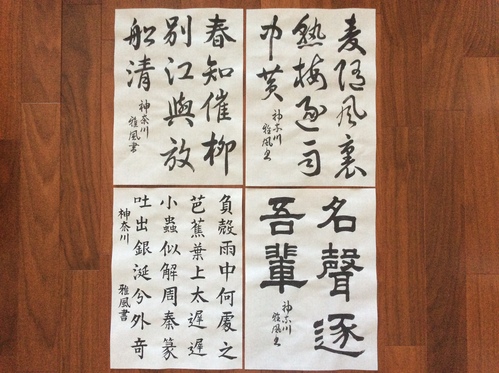 麦随風裏
熟梅逐雨
中黄
神奈川
雅風書
春知催柳
別江與放
船清
神奈川
雅風書
名聲逐
吾輩
神奈川
雅風書
負殼雨中何處之
芭蕉葉上太遲遲
小蟲似解周秦篆
吐出銀涎兮外奇
神奈川
雅風書